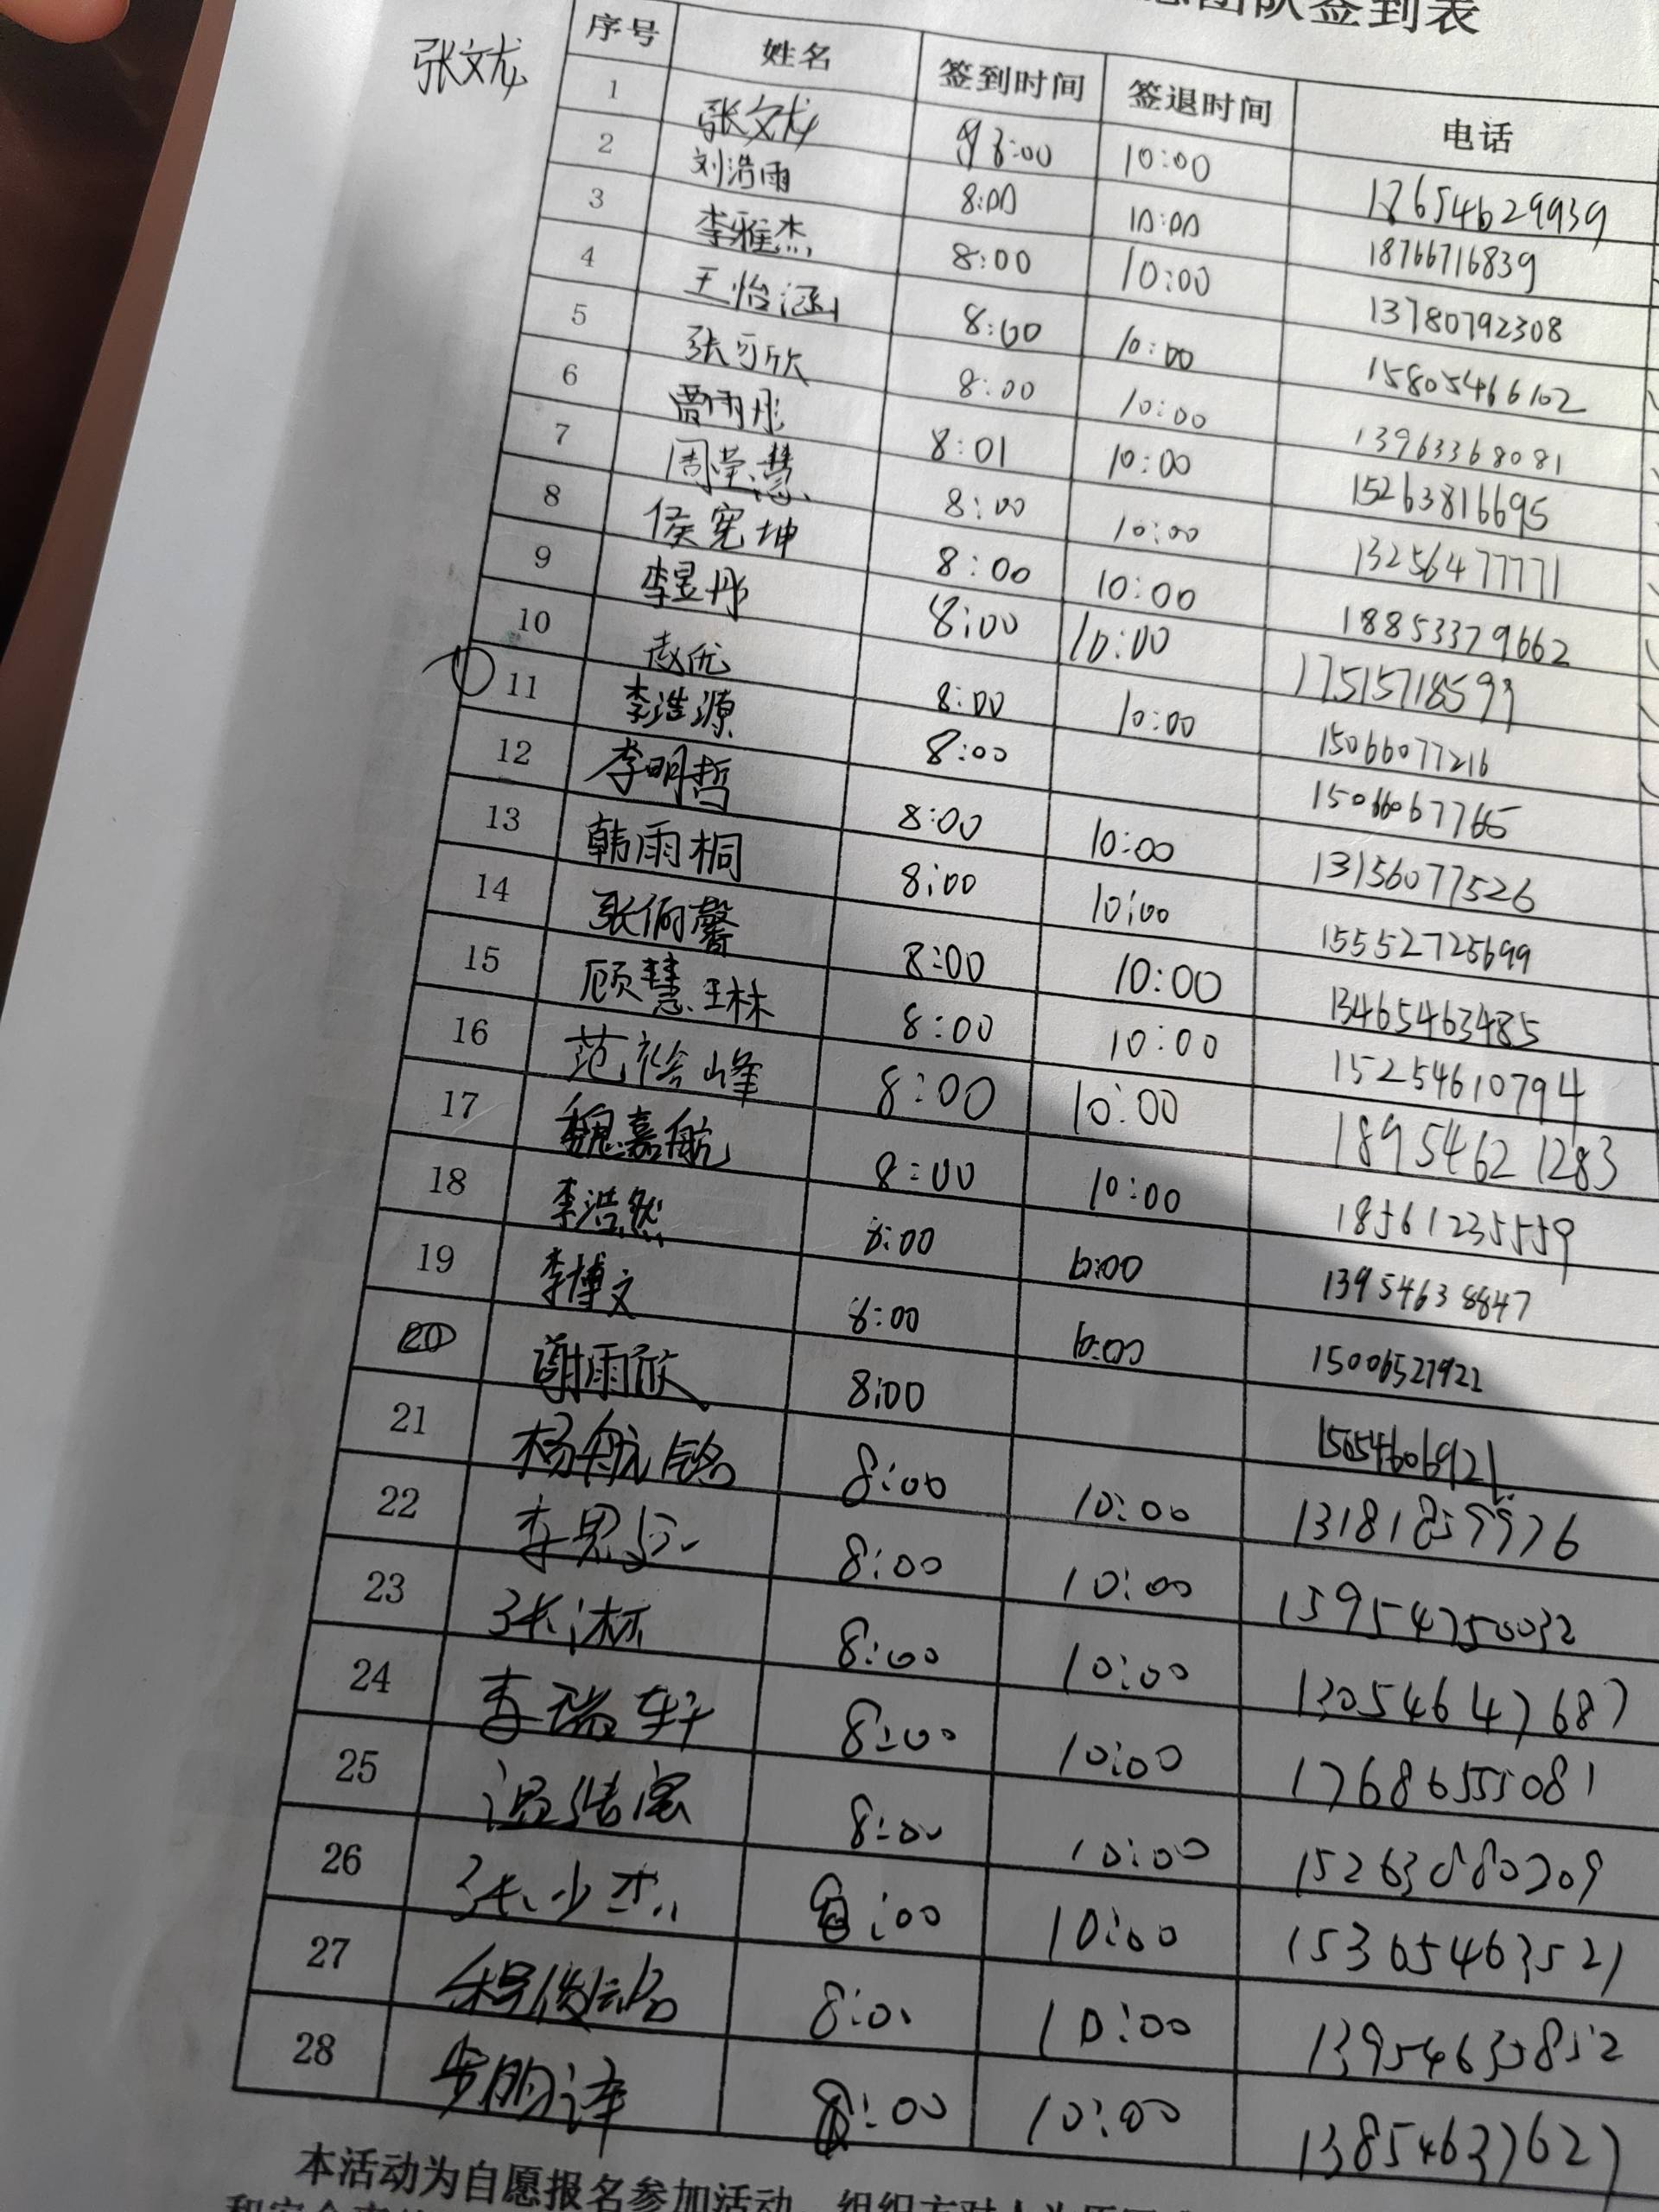 团队签到表
张文龙
序号 姓名 签到时间 签退时间 电话
1 张文龙 8:00 10:00 17654629939
2 刘浩雨 8:00 10:00 18766716839
3 李雅杰 8:00 10:00 13780792308
4 王怡涵 8:00 10:00 15805466102
5 张可欣 8:00 10:00 13963368081
6 8:01 10:00 15263816695
7 周莹慧 8:00 10:00 13256477771
8 侯宪坤 8:00 10:00 18853379662
9 李昱彤 8:00 10:00 17515718599
10 赵优 8:00 10:00 15066077216
11 李浩源 8:00
12 李明哲 8:00 10:00 13156077526
13 韩雨桐 8:00 10:00 15552725699
14 张俪馨 8:00 10:00 13465463485
15 顾慧琳 8:00 10:00 15254610794
16 范裕峰 8:00 10:00 18954621283
17 魏嘉航 8:00 10:00 18561235559
18 李浩然 8:00 10:00 13954638847
19 李博文 8:00 10:00 15006527922
20 谢雨欣 8:00 15054606921
21 杨航铭 8:00 10:00
22 8:00 10:00 15954750032
23 8:00 10:00 13054647687
24 李瑞轩 8:00 10:00 17686555081
25 8:00 10:00 15263880209
26 张少杰 8:00 10:00 15365463521
27 10:00 13954635852
28 8:00 10:00 13854637627
本活动为自愿报名参加活动